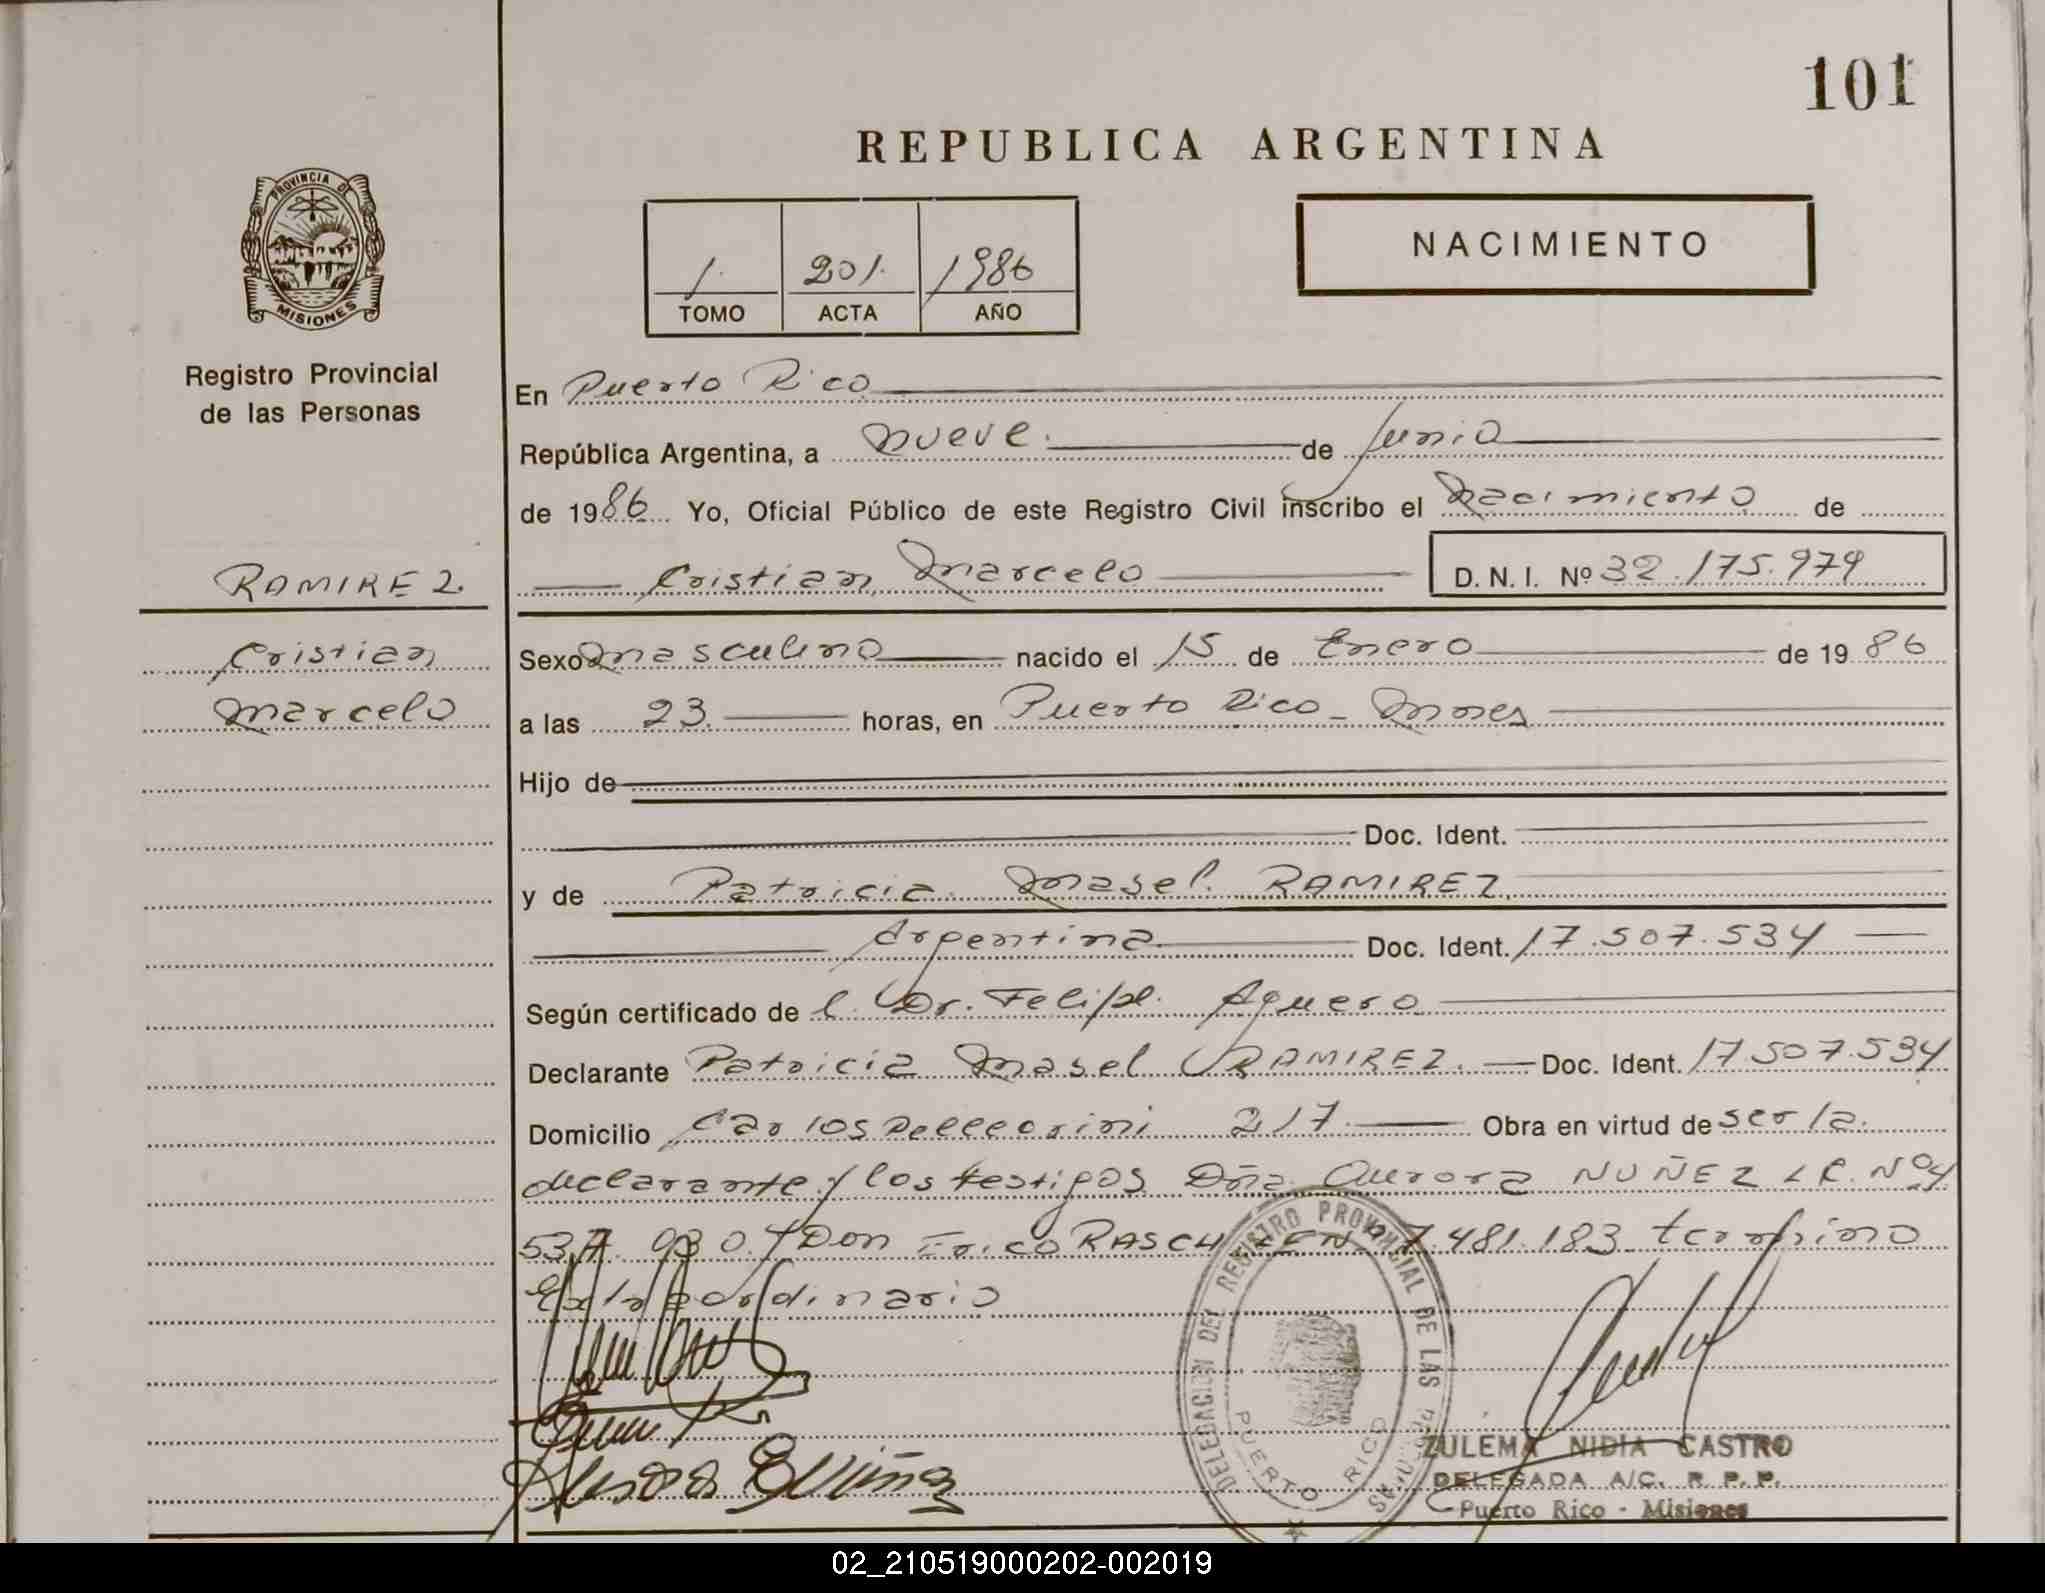 101
REPUBLICA ARGENTINA
PROVINCIA DE
MISIONES
Registro Provincial
de las Personas
1. 201. 1986
TOMO ACTA AÑO
NACIMIENTO
En Puerto Rico
República Argentina, a nueve. de Junio
de 1986 Yo, Oficial Público de este Registro Civil inscribo el Nacimiento de
RAMIREZ.
Cristian Marcelo D. N. I. Nº 32.175.979
Cristian
Marcelo
Sexo Masculino nacido el 15 de Enero de 1986
a las 23. horas, en Puerto Rico - Mnes
Hijo de
Doc. Ident.
y de Patricia Masel. RAMIREZ.
Argentina Doc. Ident. 17.507.534
Según certificado de l Dr. Felipe. Aguero
Declarante Patricia Masel RAMIREZ. Doc. Ident. 17.507.534
Domicilio Carlos Pellegrini 217. Obra en virtud de ser la
declarante y los testigos Dña. Aurora NUÑEZ L.C. Nº 4
537. 930. y Don Erico RASCH 7.481.183 termino
Extraordinario
DELEGACION DEL REGISTRO PROVINCIAL DE LAS PERSONAS
PUERTO RICO
ZULEMA NIDIA CASTRO
DELEGADA A/C. R. P. P.
Puerto Rico - Misiones
02_210519000202-002019